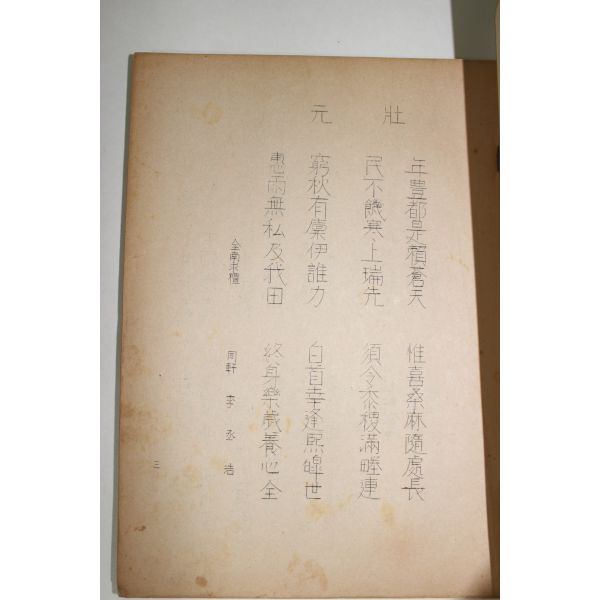 壯元
年豊都是賴蒼天 惟喜桑麻隨處長
民不饑寒上瑞先 須令黍稷滿畦連
窮秋有稟伊誰力 白首幸逢熙皥世
惠雨無私及我田 終身樂歲養心全
全南求禮 軒 李丞浩
三